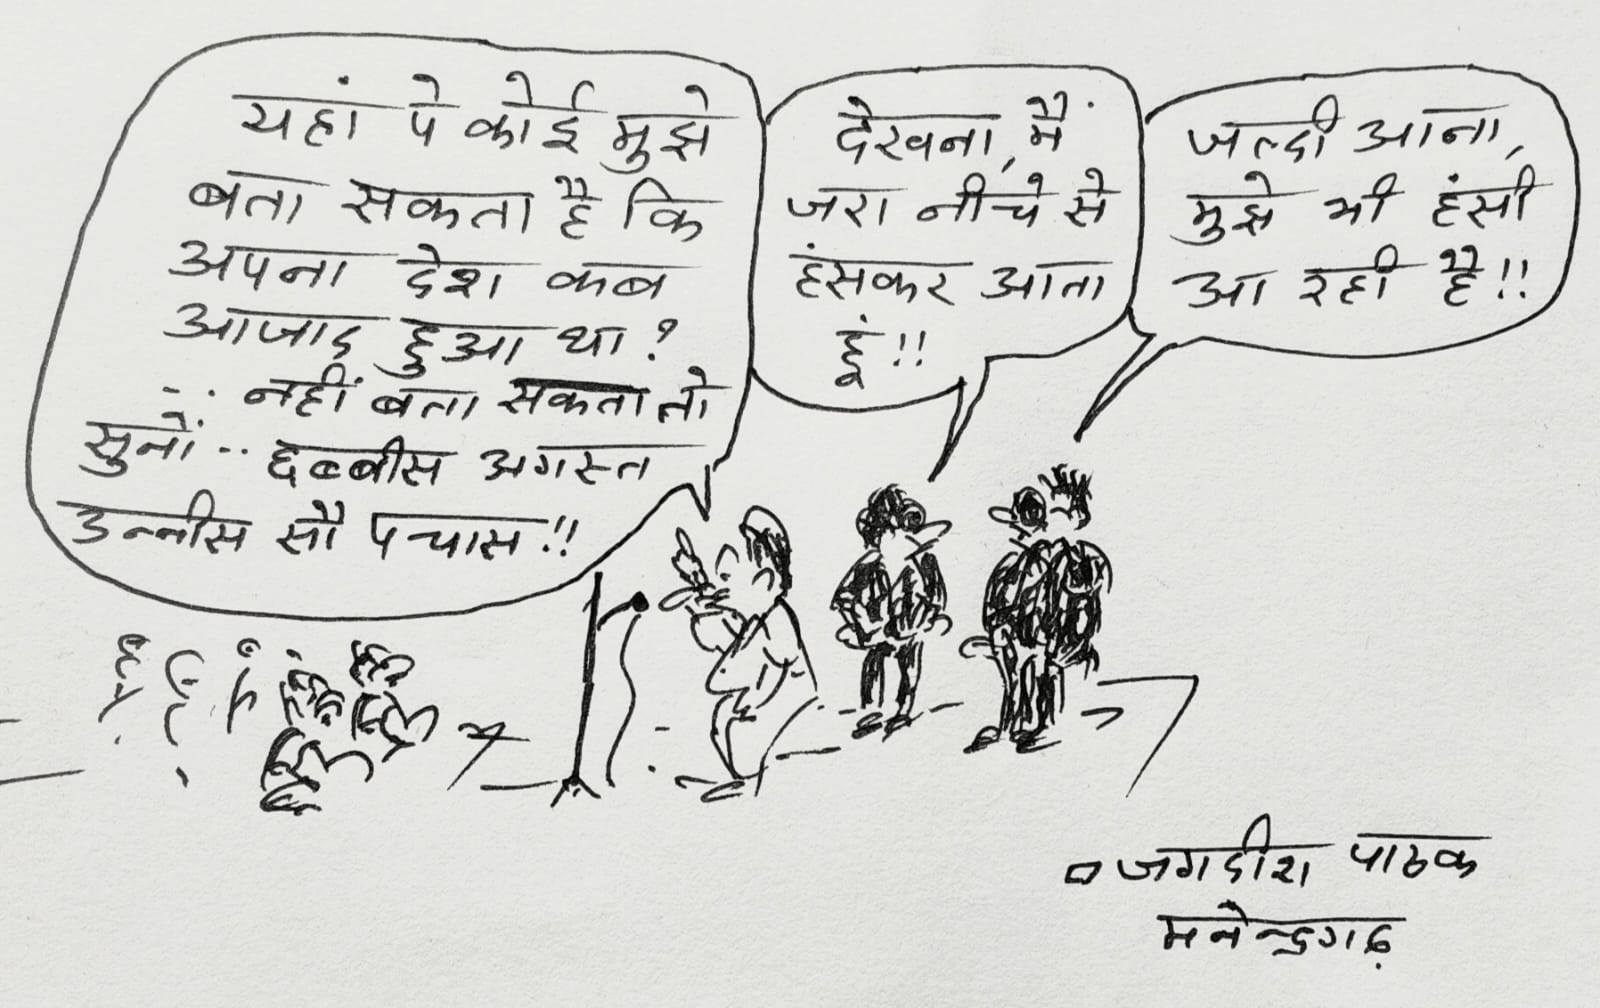 यहां पे कोई मुझे
बता सकता है कि
अपना देश कब
आजाद हुआ था?
... नहीं बता सकता तो
सुनों .. छब्बीस अगस्त
उन्नीस सौ पचास!!
देखना, मैं
जरा नीचे से
हंसकर आता
हूं!!
जल्दी आना,
मुझे भी हंसी
आ रही है!!
जगदीश पाठक
मनेन्द्रगढ़